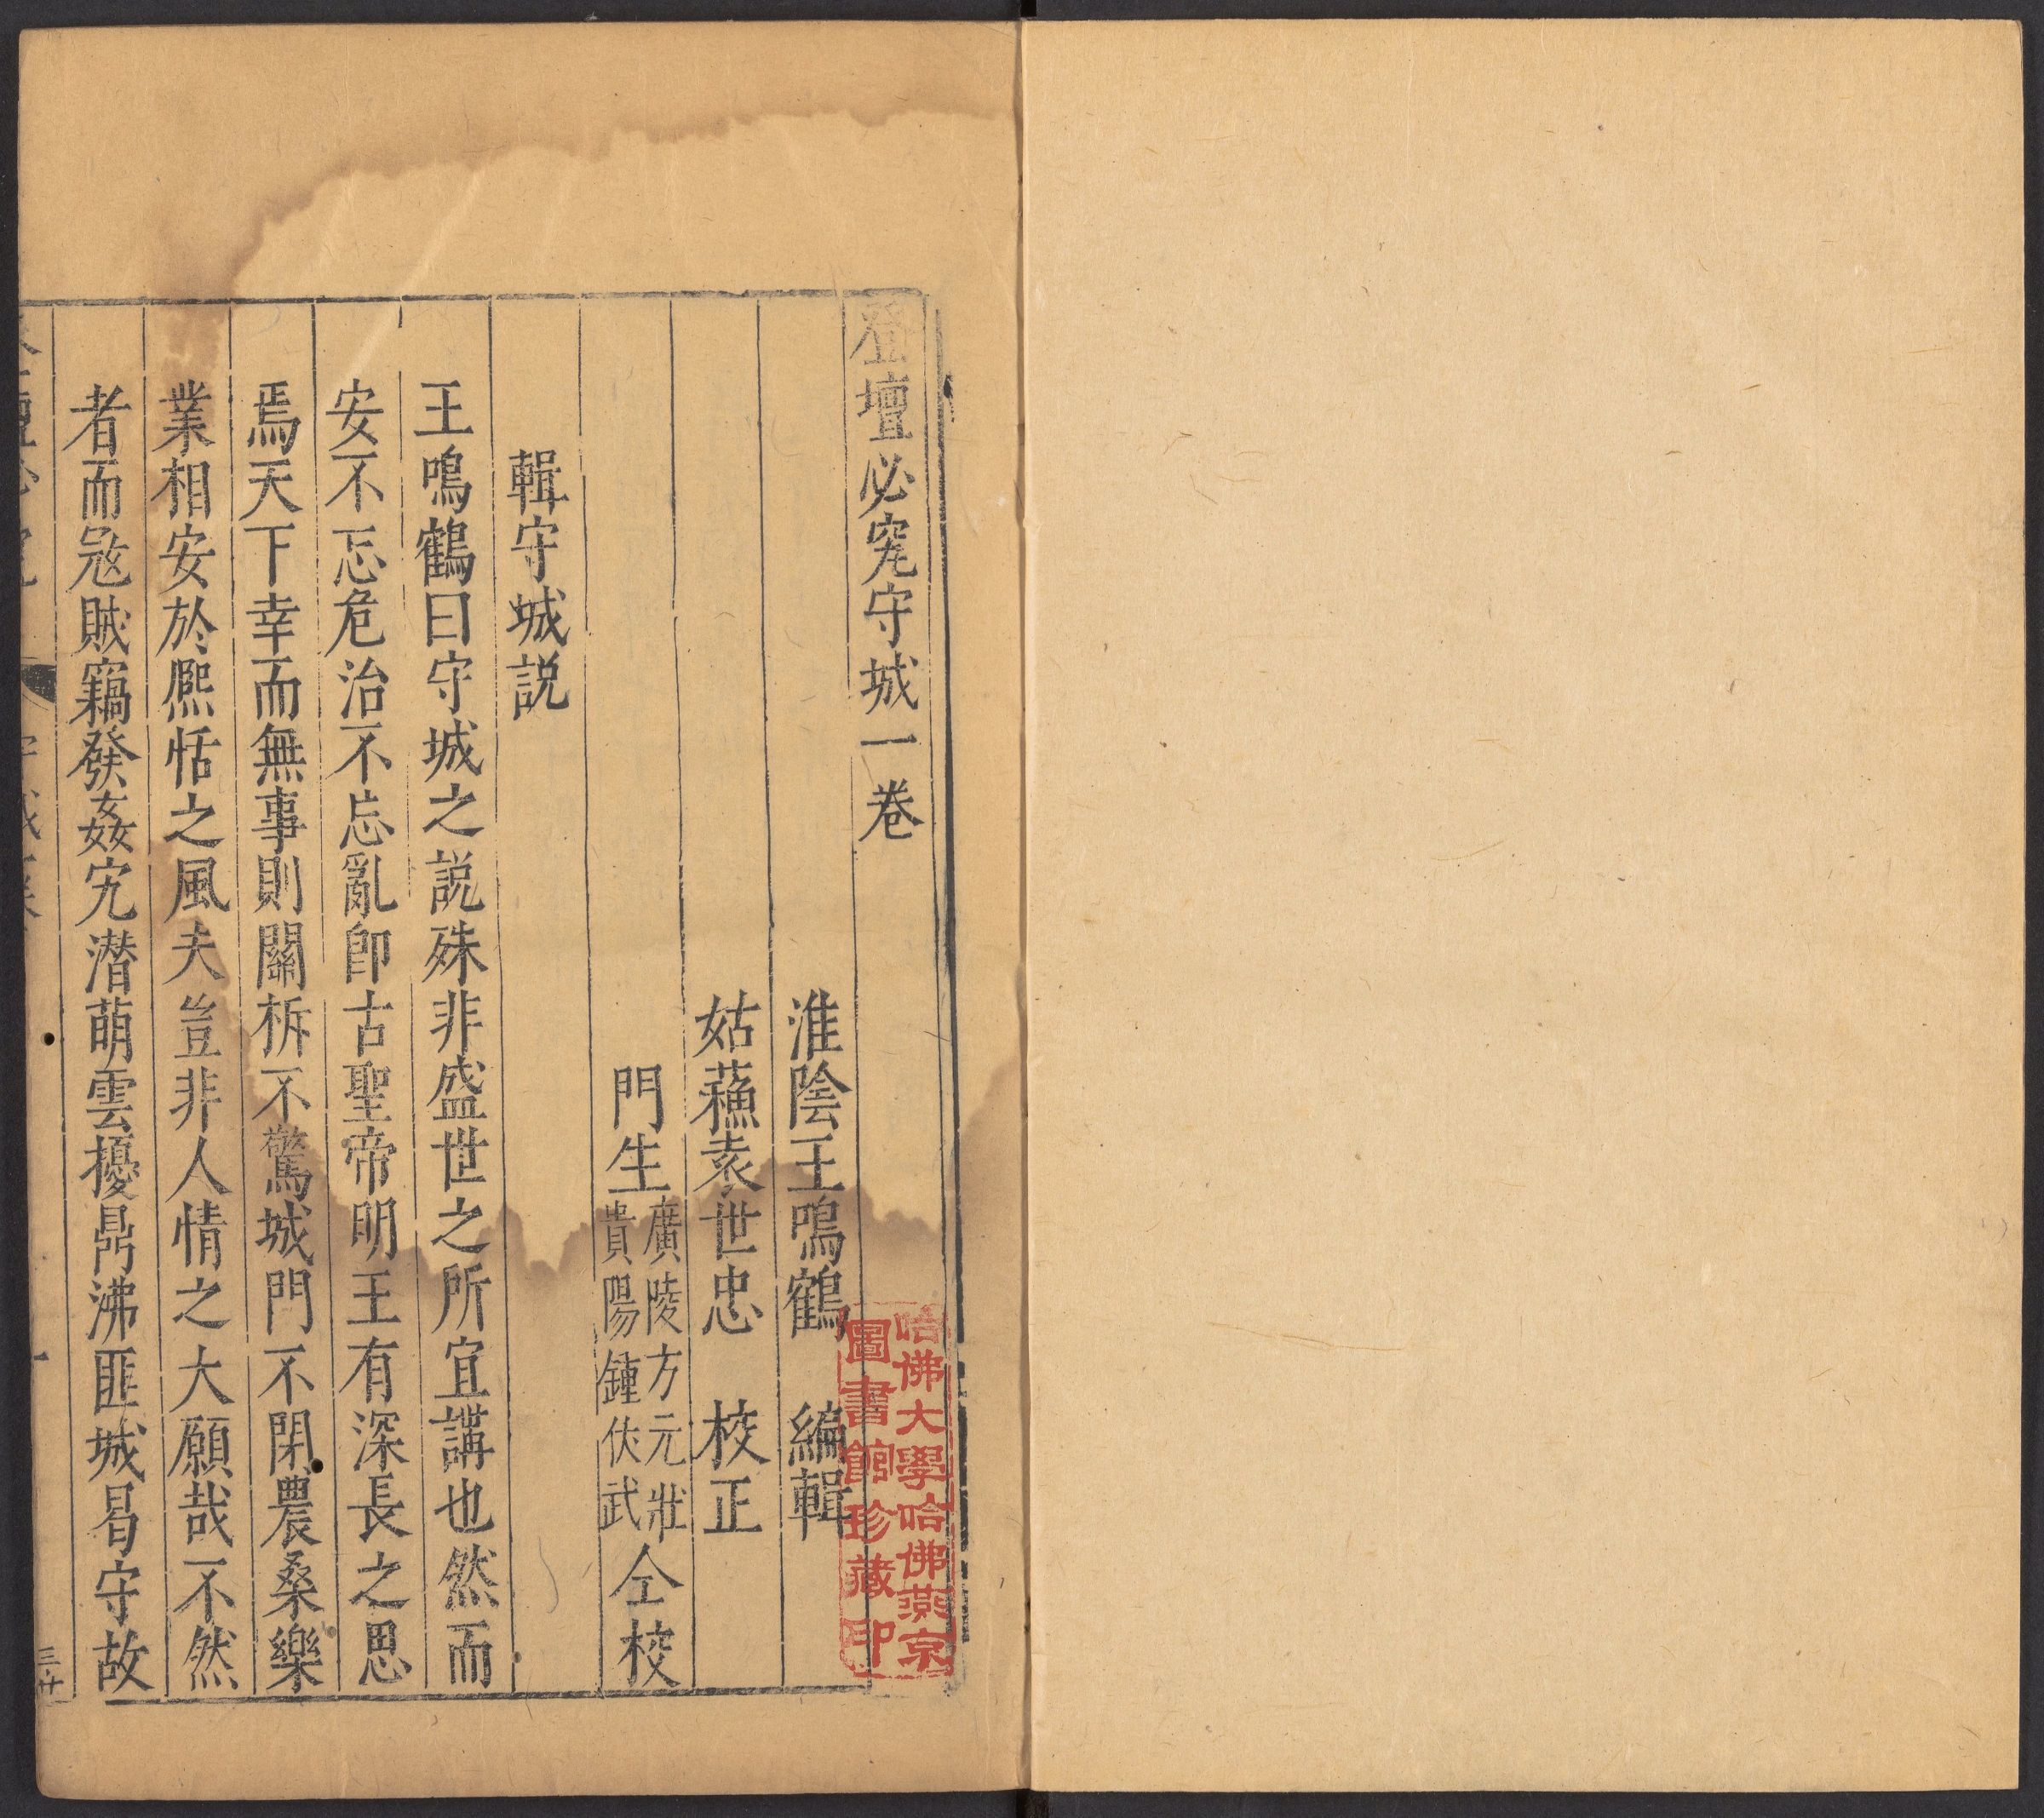 登壇必究守城一卷
淮陰王鳴鶴 編輯
姑蘓袁世忠 校正
門生廣陵方元壯貴陽鍾伏武仝校
輯守城説
王鳴鶴曰守城之説殊非盛世之所宜講也然而
安不忘危治不忘亂卽古聖帝明王有深長之思
焉天下幸而無事則關柝不驚城門不閉農桑樂
業相安於熈恬之風夫豈非人情之大願哉不然
者而㓂賊竊發姦宄潛萌雲擾鼎沸匪城曷守故
一
三廿
哈佛大學哈佛燕京
圖書館珍藏印